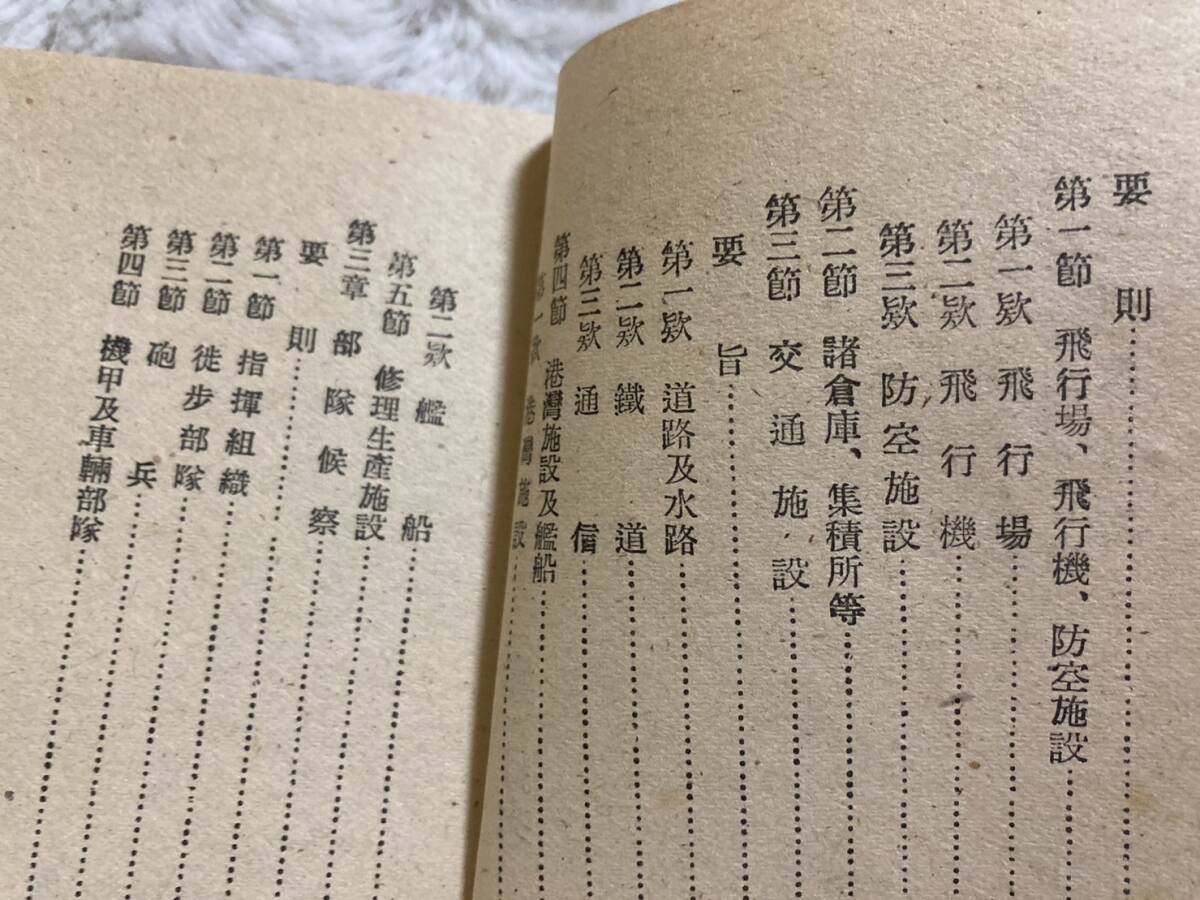 要則
第一節 飛行場、飛行機、防空施設
第一欵 飛行場
第二欵 飛行機
第三欵 防空施設
第二節 諸倉庫、集積所等
第三節 交通施設
要旨
第一欵 道路及水路
第二欵 鐵道
第三欵 通信
第四節 港灣施設及艦船
第一欵 港灣施設
第二欵 艦船
第五節 修理生產施設
第三章 部隊候察
要則
第一節 指揮組織
第二節 徒步部隊
第三節 砲兵
第四節 機甲及車輛部隊